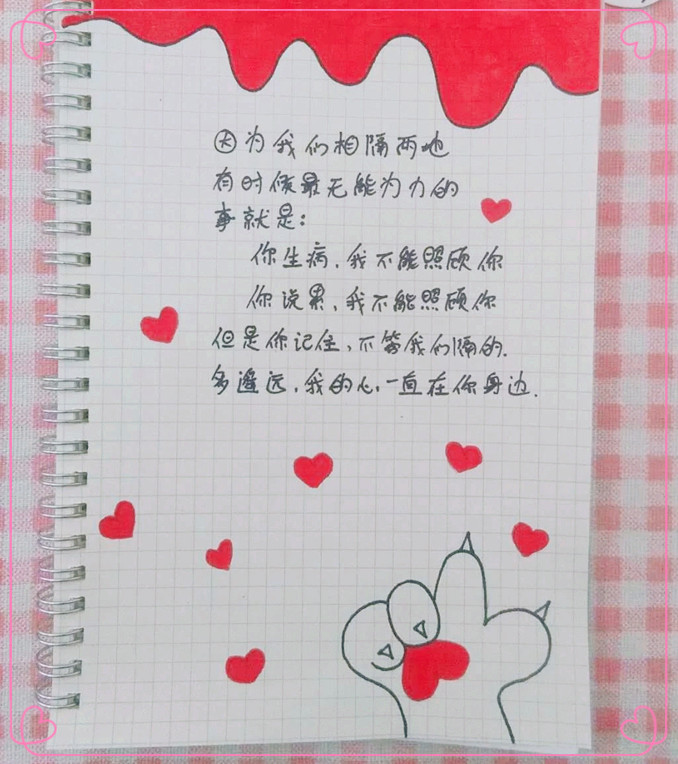 因为我们相隔两地
有时候最无能为力的
事就是：
你生病，我不能照顾你
你说累，我不能照顾你
但是你记住，不管我们隔的，
多遥远，我的心，一直在你身边.